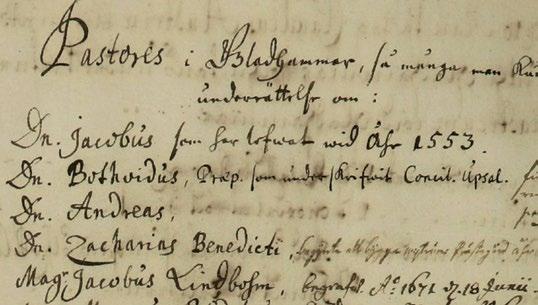 Pastores i Bladhammar, så många man
underrättelse om :
Dn. Jacobus som har lefwat wid Åhr 1553.
Dn. Bothvidus, Præp. som underskrifwit Concil. Upsal.
Dn. Andreas,
Dn. Zacharias Benedicti,
Magr Jacobus Lindbohm, begrafen Ao. 1671 d. 18 Junii